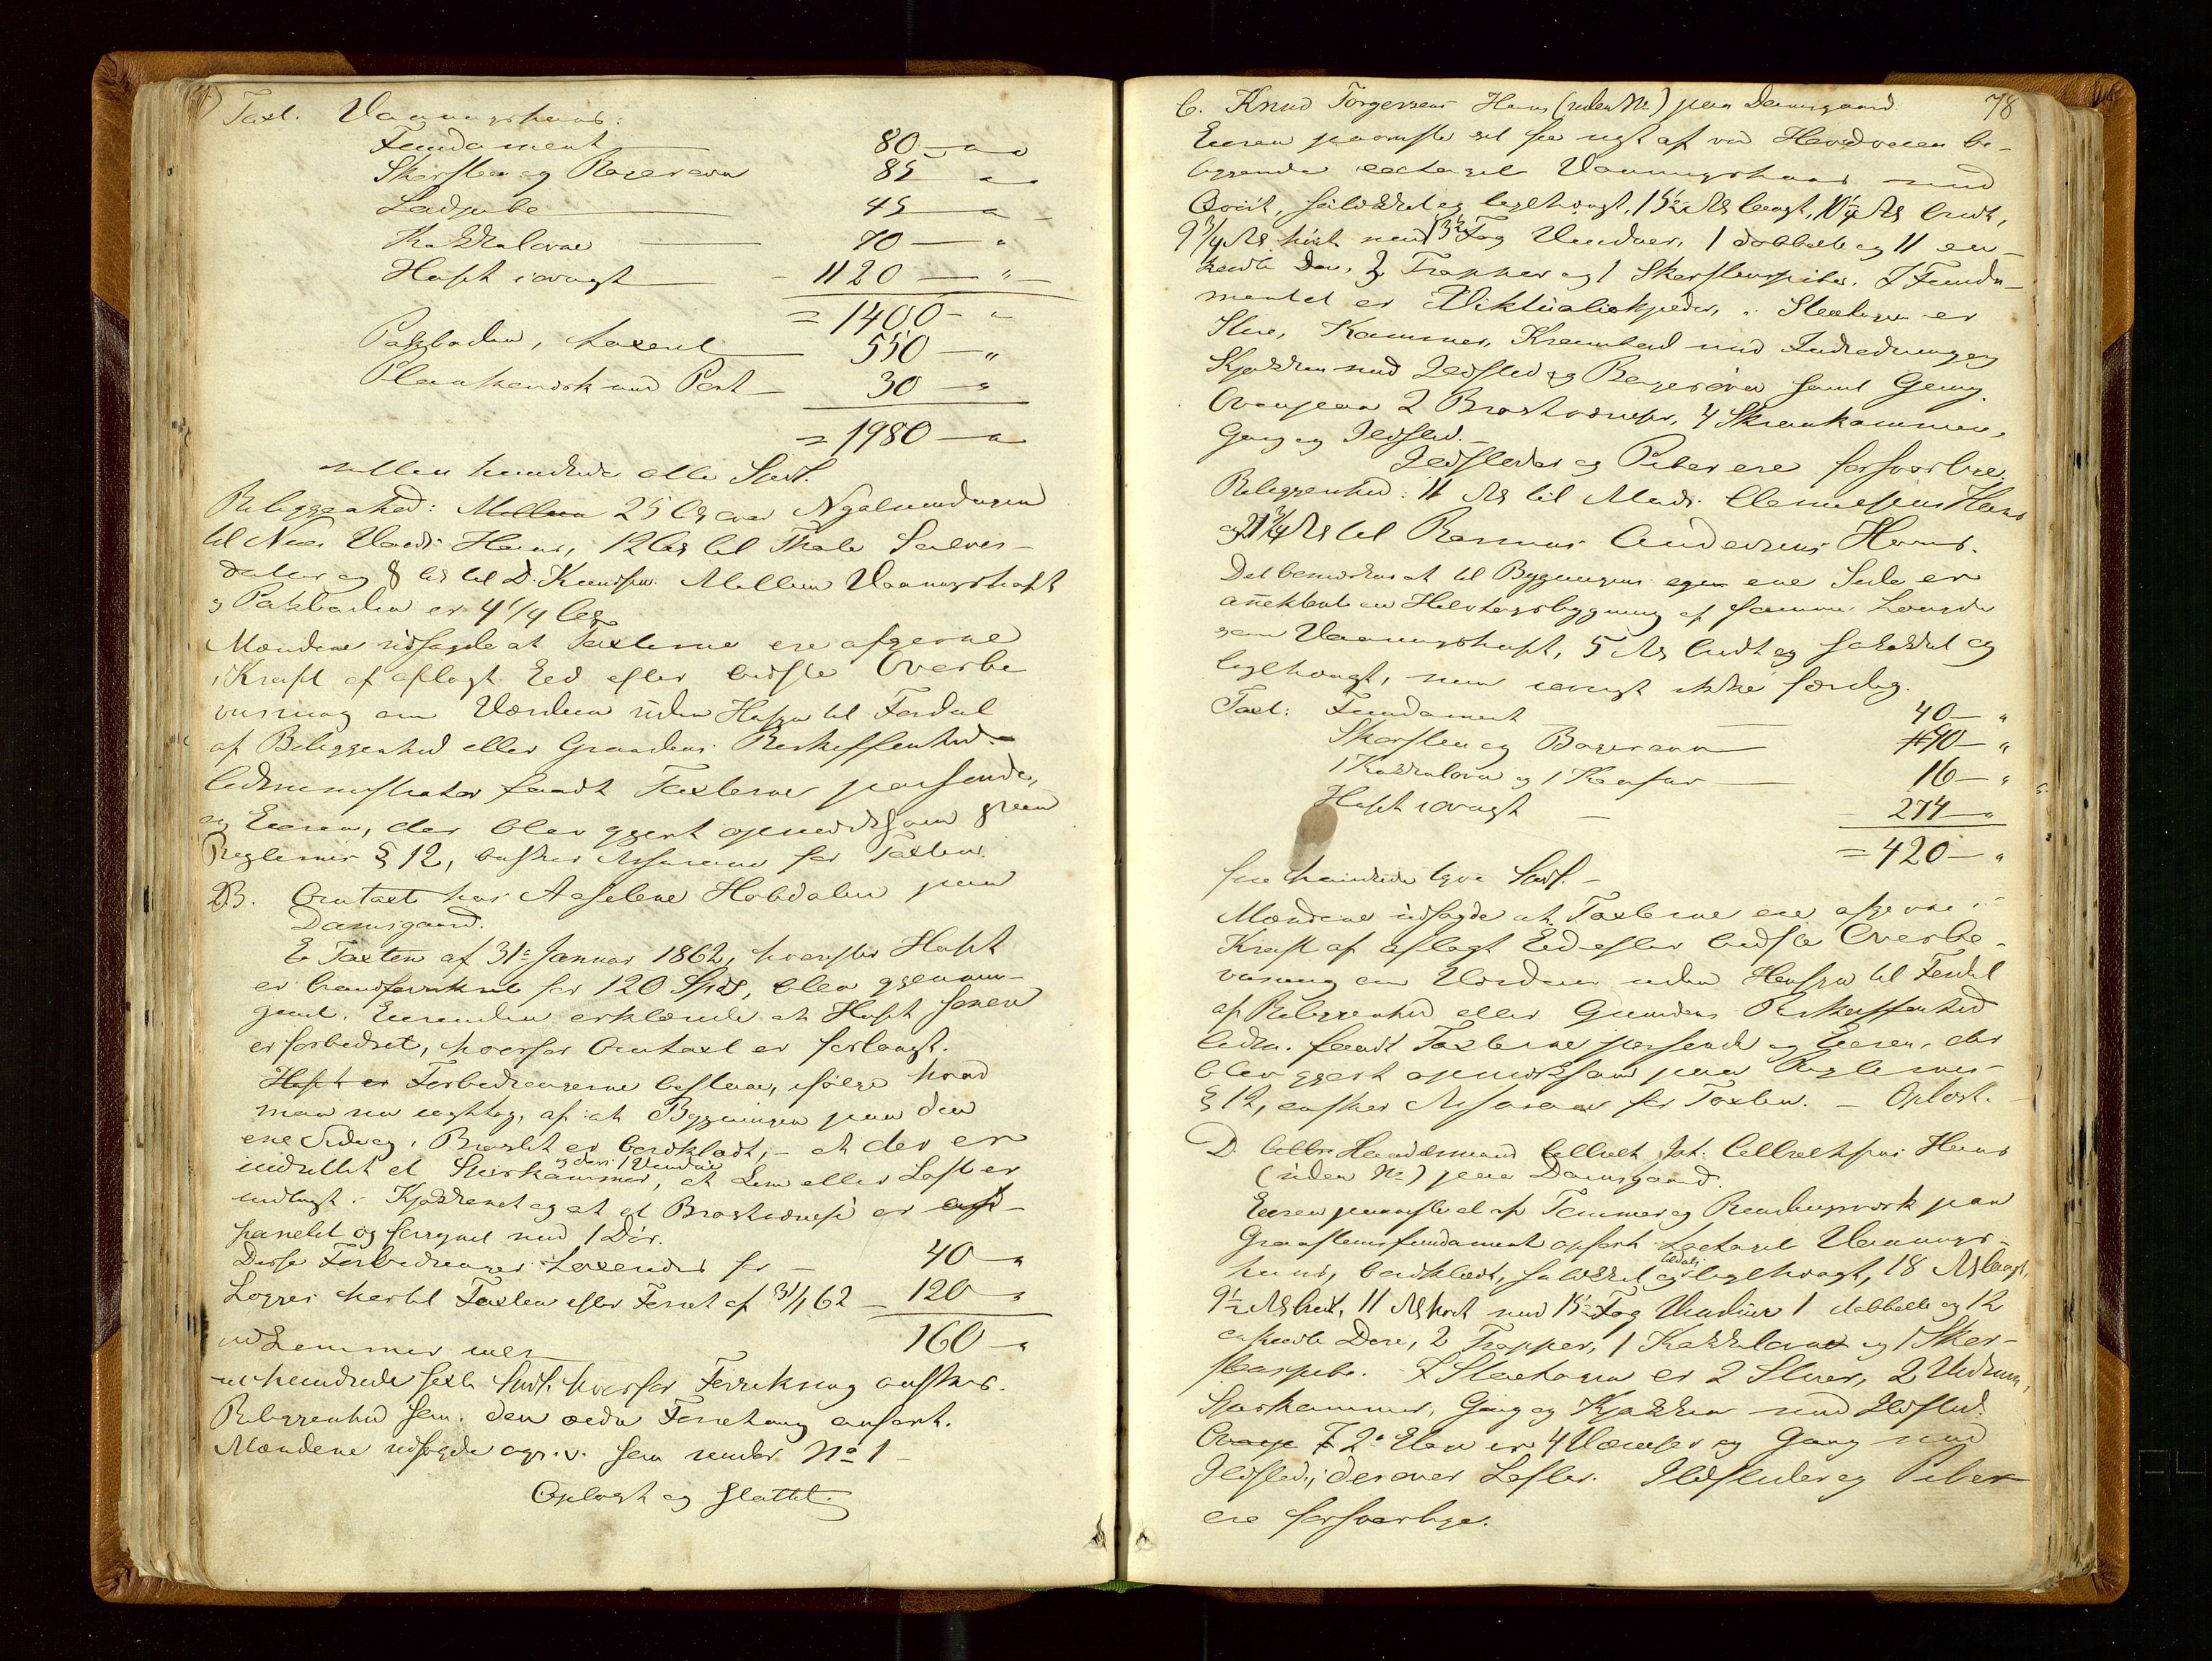 Taxt. Vaaningshuus:
Fundament 80 — "
Skorsteen og Bagerovn 85 "
Ladgube 45 "
Kakkelovne 70 — "
Huset iøvrigt 1120 — "
= 1400 — "
Pakboden, taxeret 550 — "
Plankeværk med Port 30 — "
= 1980 — "
nitten hundrede otte Spd.
Beliggenhed: Mellem 25 Al over
til Niels Huus, 12 Al til Thale
og 8 Al til D. Knudsen. Mellem Vaaningshuset
og Pakboden er 4 1/4 Al.
Mændene udsagde at Taxterne ere afgivne
i Kraft af aflagt Eed efter bedste Overbe
viisning om Værdien uden Hensyn til Fordeel
af Beliggenhed eller Grundens Beskaffenhed.
Administrator fandt Taxterne passende,
og Eieren, der blev gjort opmærksom paa
Reglernes § 12, ønsker Assurance for Taxten.
B. Omtaxt hos Aaselene Hobdalen paa
Damsgaard.
E Taxten af 31e Januar 1862, hvorefter Huset
er brandforsikret for 120 Spd, blev gjennem-
gaaet. Eierinden erklærede at Huset senere
er forbedret, hvorfor Omtaxt er forlangt.
Huset er Forbedringerne bestaae, ifølge hvad
man nu iagttog, af: at Bygningen paa den
ene Side og i Brøstet er bordklædt, — at der er
og deri 1 Vindue
indrettet et Spiskammer, at Lem eller Loft er
indlagt i Kjøkkenet og at et Brøstværelse er
panelet og forsynet med 1 Dør.
Disse Forbedringer taxeredes for — 40 — "
Lægges hertil Taxten efter Forret. af 31/1 62 — 120 — "
udkommer 160 — "
et hundrede sexti Spd. hvorfor Forsikring ønskes.
Beliggenhed som i den ældre Forretning anført.
Mændene udsagde o.s.v. som under No 1
Oplæst og sluttet.
78
C. Knud Torgersens Huus (uden No) paa Damsgaard.
Eieren paaviste et
liggende eetages Vaaningshuus med
Qvist, sulekket og teglhængt, 15 1/2 Al langt, 10 1/4 Al bredt,
9 3/4 Al høit med 13 1/2 Fag Vinduer, 1 dobbelt og 11 en-
kelte Døre, 2 Trapper og 1 Skorsteenspibe. I Funda-
mentet er Viktualiekjelder, i Stueetagen er
Stue, Kammer, Krambod med Indredning og
Kjøkken med Ildsted og Bagerovn samt Gang.
Ovenpaa 2 Brøstværelser, 4 Skraakammere,
Gang og Ildsted.
Ildsteder og Piber ere forsvarlige.
Beliggenhed: 11 Al til Mads Clemetsens Huus
og 21 3/4 Al til Rasmus Andersens Huus.
Det bemærkes at til Bygningens egen ene Side er
anekteret en Halvtagsbygning af samme Længde
som Vaaningshuset, 5 Al bredt og sulekket og
teglhængt, men iøvrigt ikke færdig.
Taxt: Fundament 40 — "
Skorsteen og Bagerovn 90 — "
1 Kakkelovn og 1 Komfur 16 — "
Huset iøvrigt 274 — "
= 420 — "
fire hundrede tyve Spd. —
Mændene udsagde at Taxterne ere afgivne i
Kraft af aflagt Eed efter bedste Overbe-
viisning om Værdien uden Hensyn til Fordel
af Beliggenhed eller Grundens Beskaffenhed
Adm. fandt Taxterne passende og Eieren, der
blev gjort opmærksom paa Reglernes
§ 12, ønsker Assurance for Taxten. — Oplæst.
D. Handelsmand Huus
(uden No) paa Damsgaard.
Eieren paaviste et af Tømmer og Bindingsværk paa
Graasteensfundament opført toetages Vaanings-
huus, bordklædt, sulekket og teglhængt, 18 Al langt,
9 1/2 Al bredt, 11 Al høit med 15 1/2 Fag Vinduer 1 dobbelt og 12
enkelte Døre, 2 Trapper, 1 Kakkelovn og 1 Skor-
steenspibe. I Stueetagen er 2 Stuer, 2 Udrum,
Spiskammer, Gang og Kjøkken med Ildsted.
I 2n Etage er 4 Værelser og Gang med
Ildsted; derover Lofter. Ildsteder og Piber
ere forsvarlige.